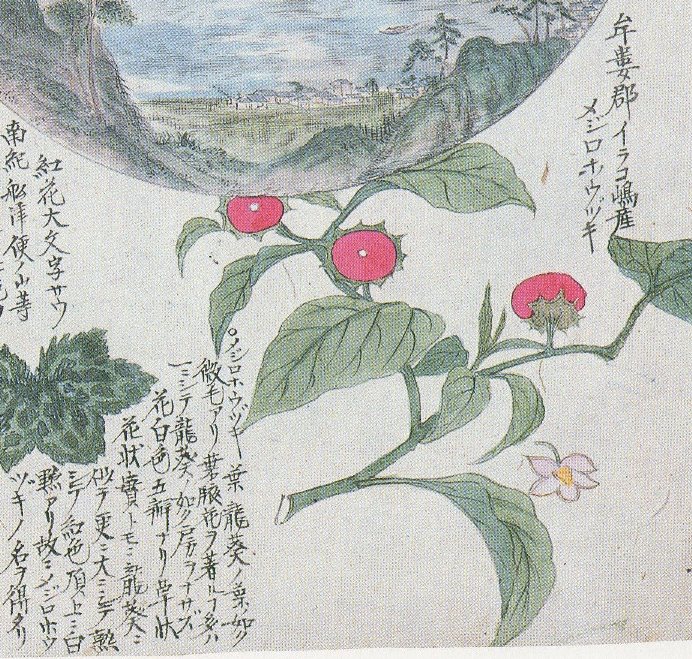 牟婁郡イラコ嶋産
メジロホウヅキ
○メジロホウヅキ葉龍葵ノ葉如ク
微毛アリ葉腋花ヲ著ル了多ハ
一ミシテ龍葵ノ如ク房ヲナサズ
花白色五瓣ナリ草状
花状實トモニ龍葵ニ
似テ更ニ大ミシテ熟
ミテ紅色頂上ニ白
點アリ故ニメジロホウ
ヅキノ名ヲ得タリ
紅花大文字サウ
南紀船津便ノ山等